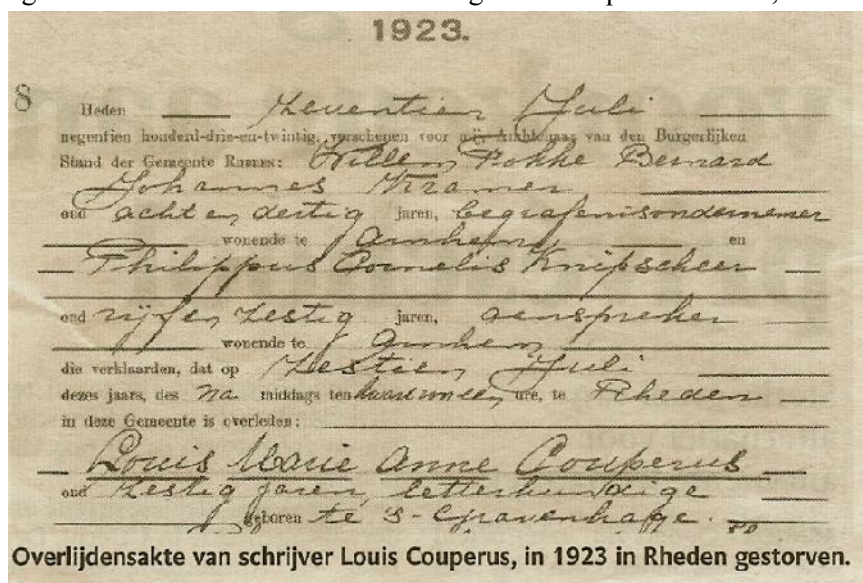 1923.
8
Heden Zeventien Juli
negentien honderd-drie-en-twintig, verschenen voor mij Ambtenaar van den Burgerlijken
Stand der Gemeente RHEDEN: Willem Fokke Bernard
Johannes Kramer
oud acht en dertig jaren, begrafenisondernemer
wonende te Arnhem en
Philippus Cornelis Knipscheer
oud vijf en zestig jaren, aanspreker
wonende te Arnhem
die verklaarden, dat op Zestien Juli
dezes jaars, des na middags ten kwart voor een ure, te Rheden
in deze Gemeente is overleden:
Louis Marie Anne Couperus
oud zestig jaren, letterkundige
geboren te 's-Gravenhage.
Overlijdensakte van schrijver Louis Couperus, in 1923 in Rheden gestorven.